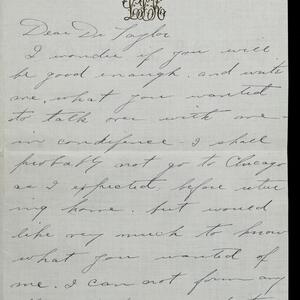 Dear Dr Taylor
I wonder if you will
be good enough and write
me, what you wanted
to talk over with me
in confidence - I shall
probably not go to Chicago
as I expected, before retur
ing home. but would
like very much to know
what you wanted of
me. I can not form any